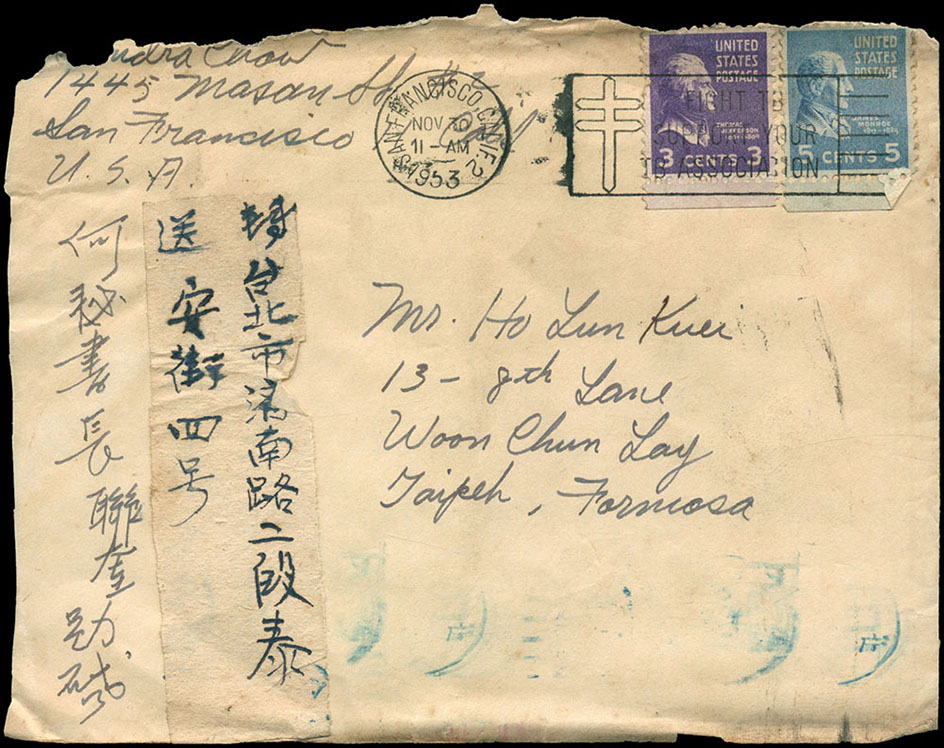 Chow
1445 Mason St. #2
San Francisco
U. S. A.
SAN FRANCISCO, CALIF. 2
NOV 30
11 - AM
1953
FIGHT TB
YOUR
TB ASSOCIATION
UNITED
STATES
POSTAGE
THOMAS
JEFFERSON
3 CENTS 3
UNITED
STATES
POSTAGE
JAMES
MONROE
5 CENTS 5
Mr. Ho Lun Kuei
13 - 8th Lane
Woon Chun Lay
Taipeh, Formosa
轉台北市濟南路二段泰
安街四号
送
何秘書長聯奎勛啟